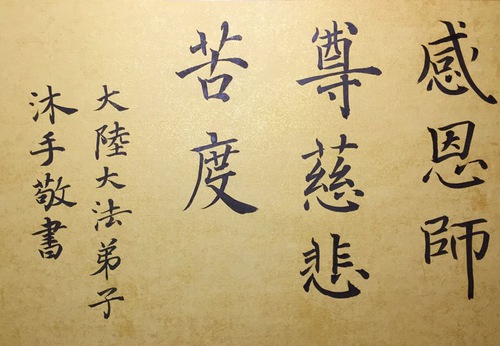 感恩師
尊慈悲
苦度
大陸大法弟子
沐手敬書